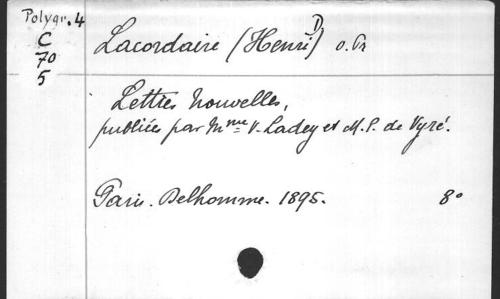 Polygr. 4
C
70
5
Lacordaire (Henri D) o. Pr
Lettres Nouvelles,
publiées par Mme V. Ladey et M. P. de Vyré.
Paris. Delhomme. 1895. 8°